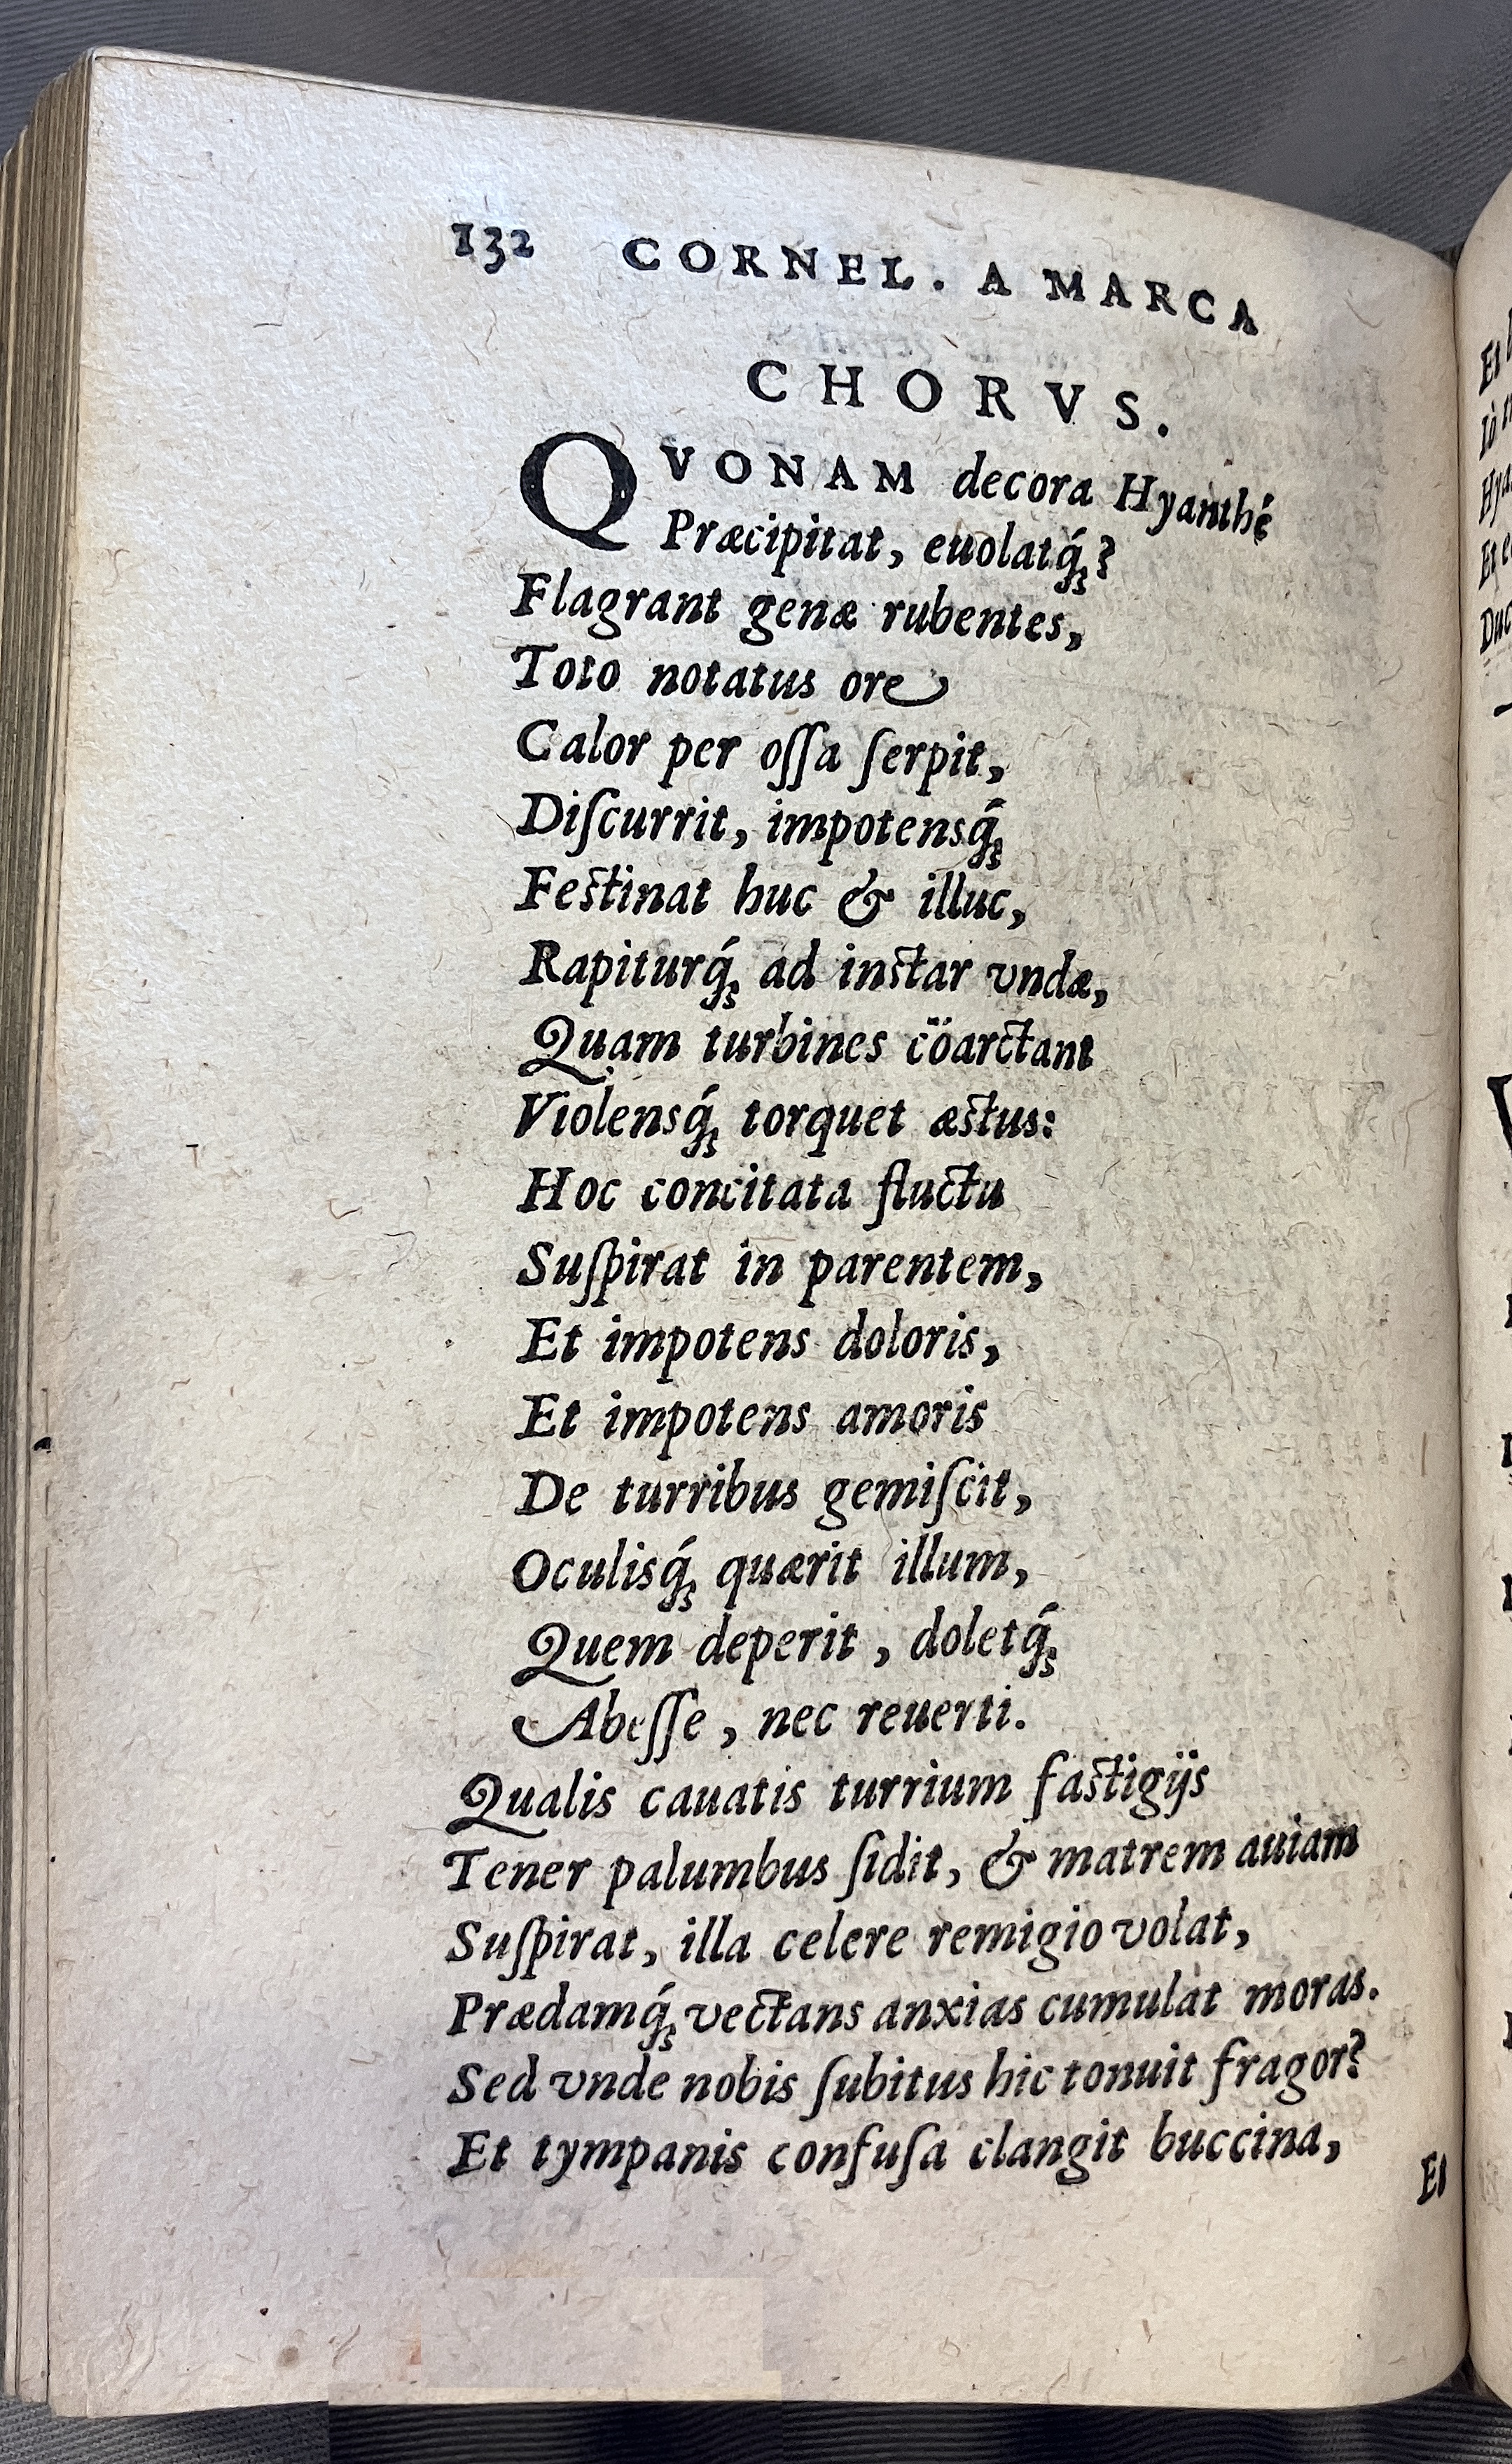 132 CORNEL. A MARCA
CHORVS.
QVONAM decora Hyanthé
Præcipitat, euolatq́ꝫ?
Flagrant genæ rubentes,
Toto notatus ore
Calor per oſſa ſerpit,
Diſcurrit, impotensq́ꝫ
Feſtinat huc & illuc,
Rapiturq́ꝫ ad inſtar vndæ,
Quam turbines cöarctant
Violensq́ꝫ torquet æſtus:
Hoc concitata fluctu
Suſpirat in parentem,
Et impotens doloris,
Et impotens amoris
De turribus gemiſcit,
Oculisq́ꝫ quærit illum,
Quem deperit, doletq́ꝫ
Abeſſe, nec reuerti.
Qualis cauatis turrium faſtigijs
Tener palumbus ſidit, & matrem auiam
Suſpirat, illa celere remigio volat,
Prædamq́ꝫ vectans anxias cumulat moras.
Sed vnde nobis ſubitus hic tonuit fragor?
Et tympanis confuſa clangit buccina,
Et